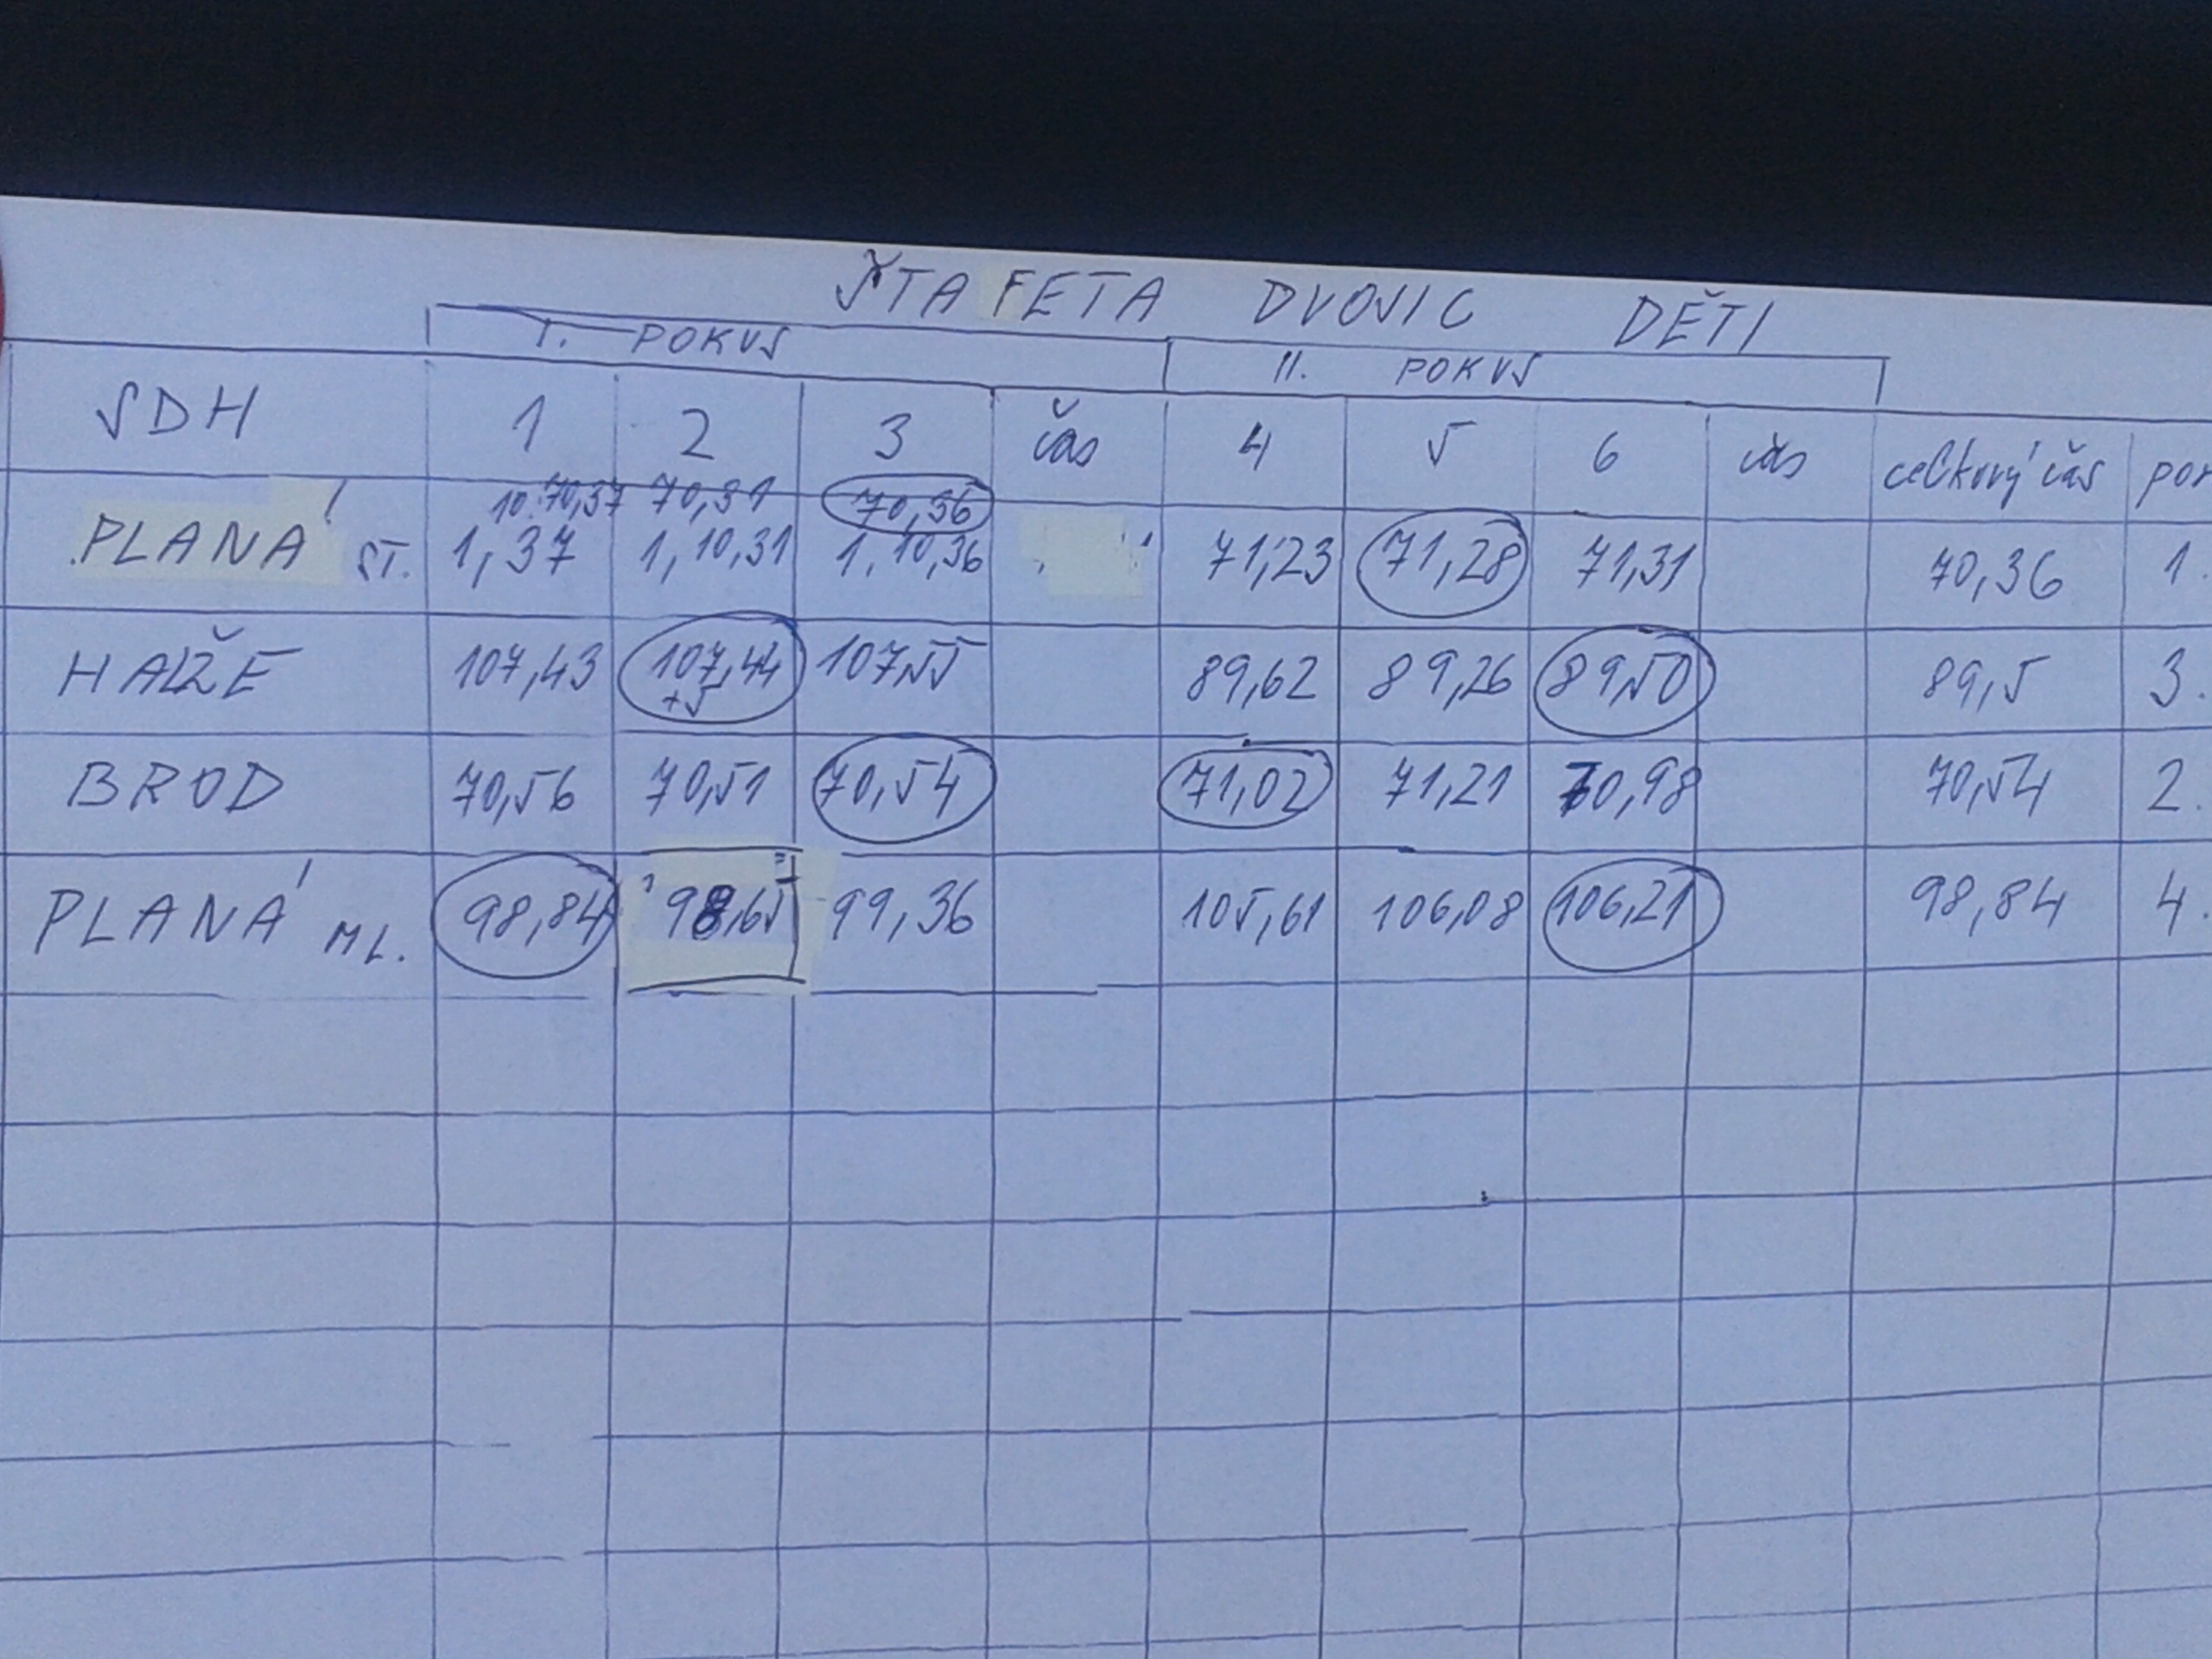 ŠTAFETA DVOJIC DĚTI
I. POKUS II. POKUS
SDH 1 2 3 čas 4 5 6 čas celkový čas poř
70,37 70,31 70,36
PLANÁ ST. 1,37 1,10,31 1.10,36 71,23 71,28 71,31 70,36 1.
HALŽE 107,43 107,44 107,55 89,62 89,26 89,50 89,5 3.
+5
BROD 70,56 70,51 70,54 71,02 71,21 70,98 70,54 2.
PLANÁ ML. 98,84 98,65 99,36 105,61 106,08 106,21 98,84 4.